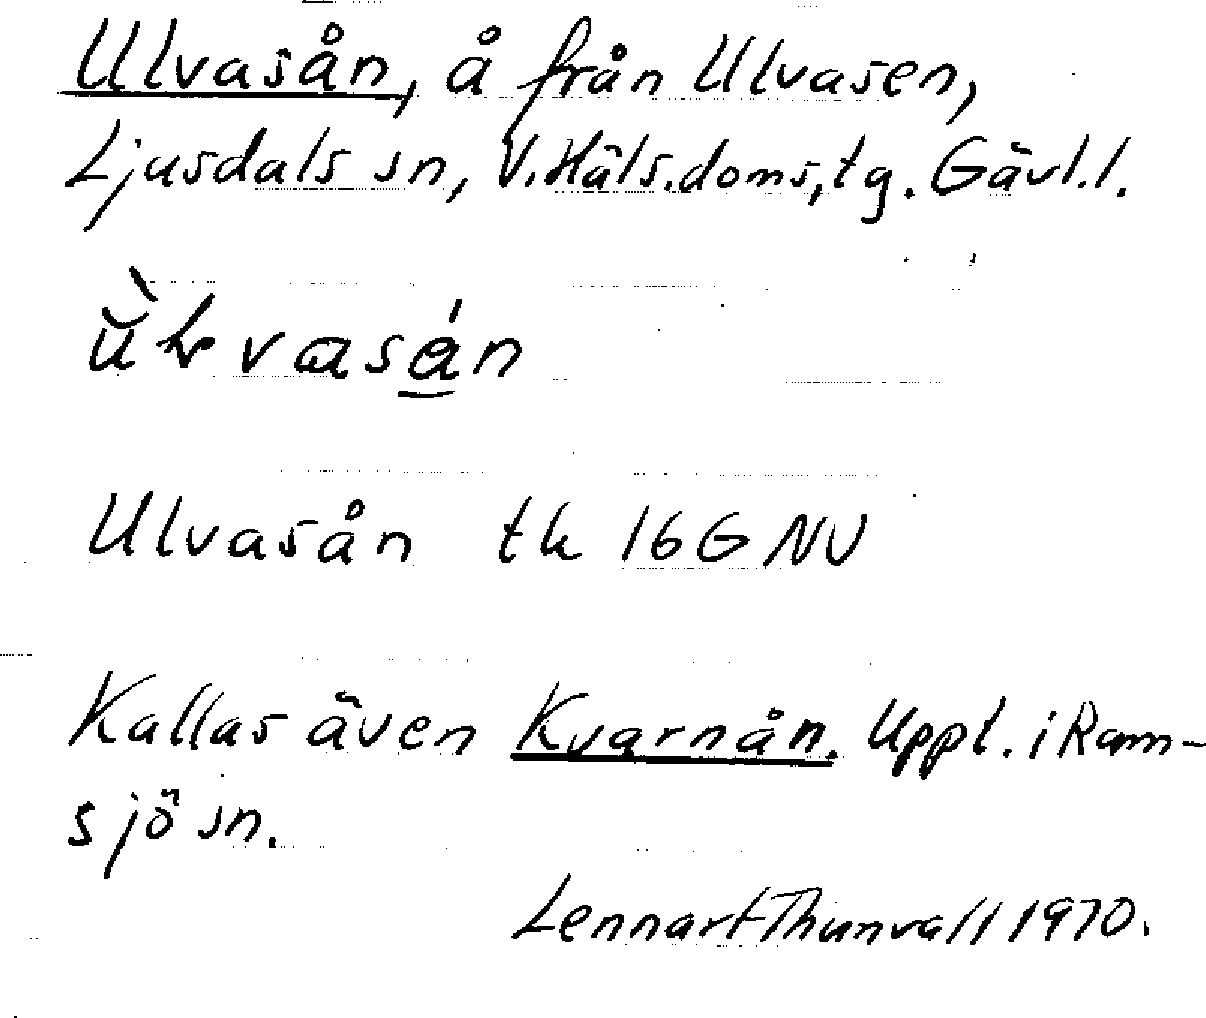 Ulvasån, å från Ulvasen,
Ljusdals sn, V. Häls. doms, tg. Gävl. l.
Ulvasån tk 16G NV
Kallas även Kvarnån. Uppt. i Ram-
sjö sn.
Lennart Thunvall 1970.